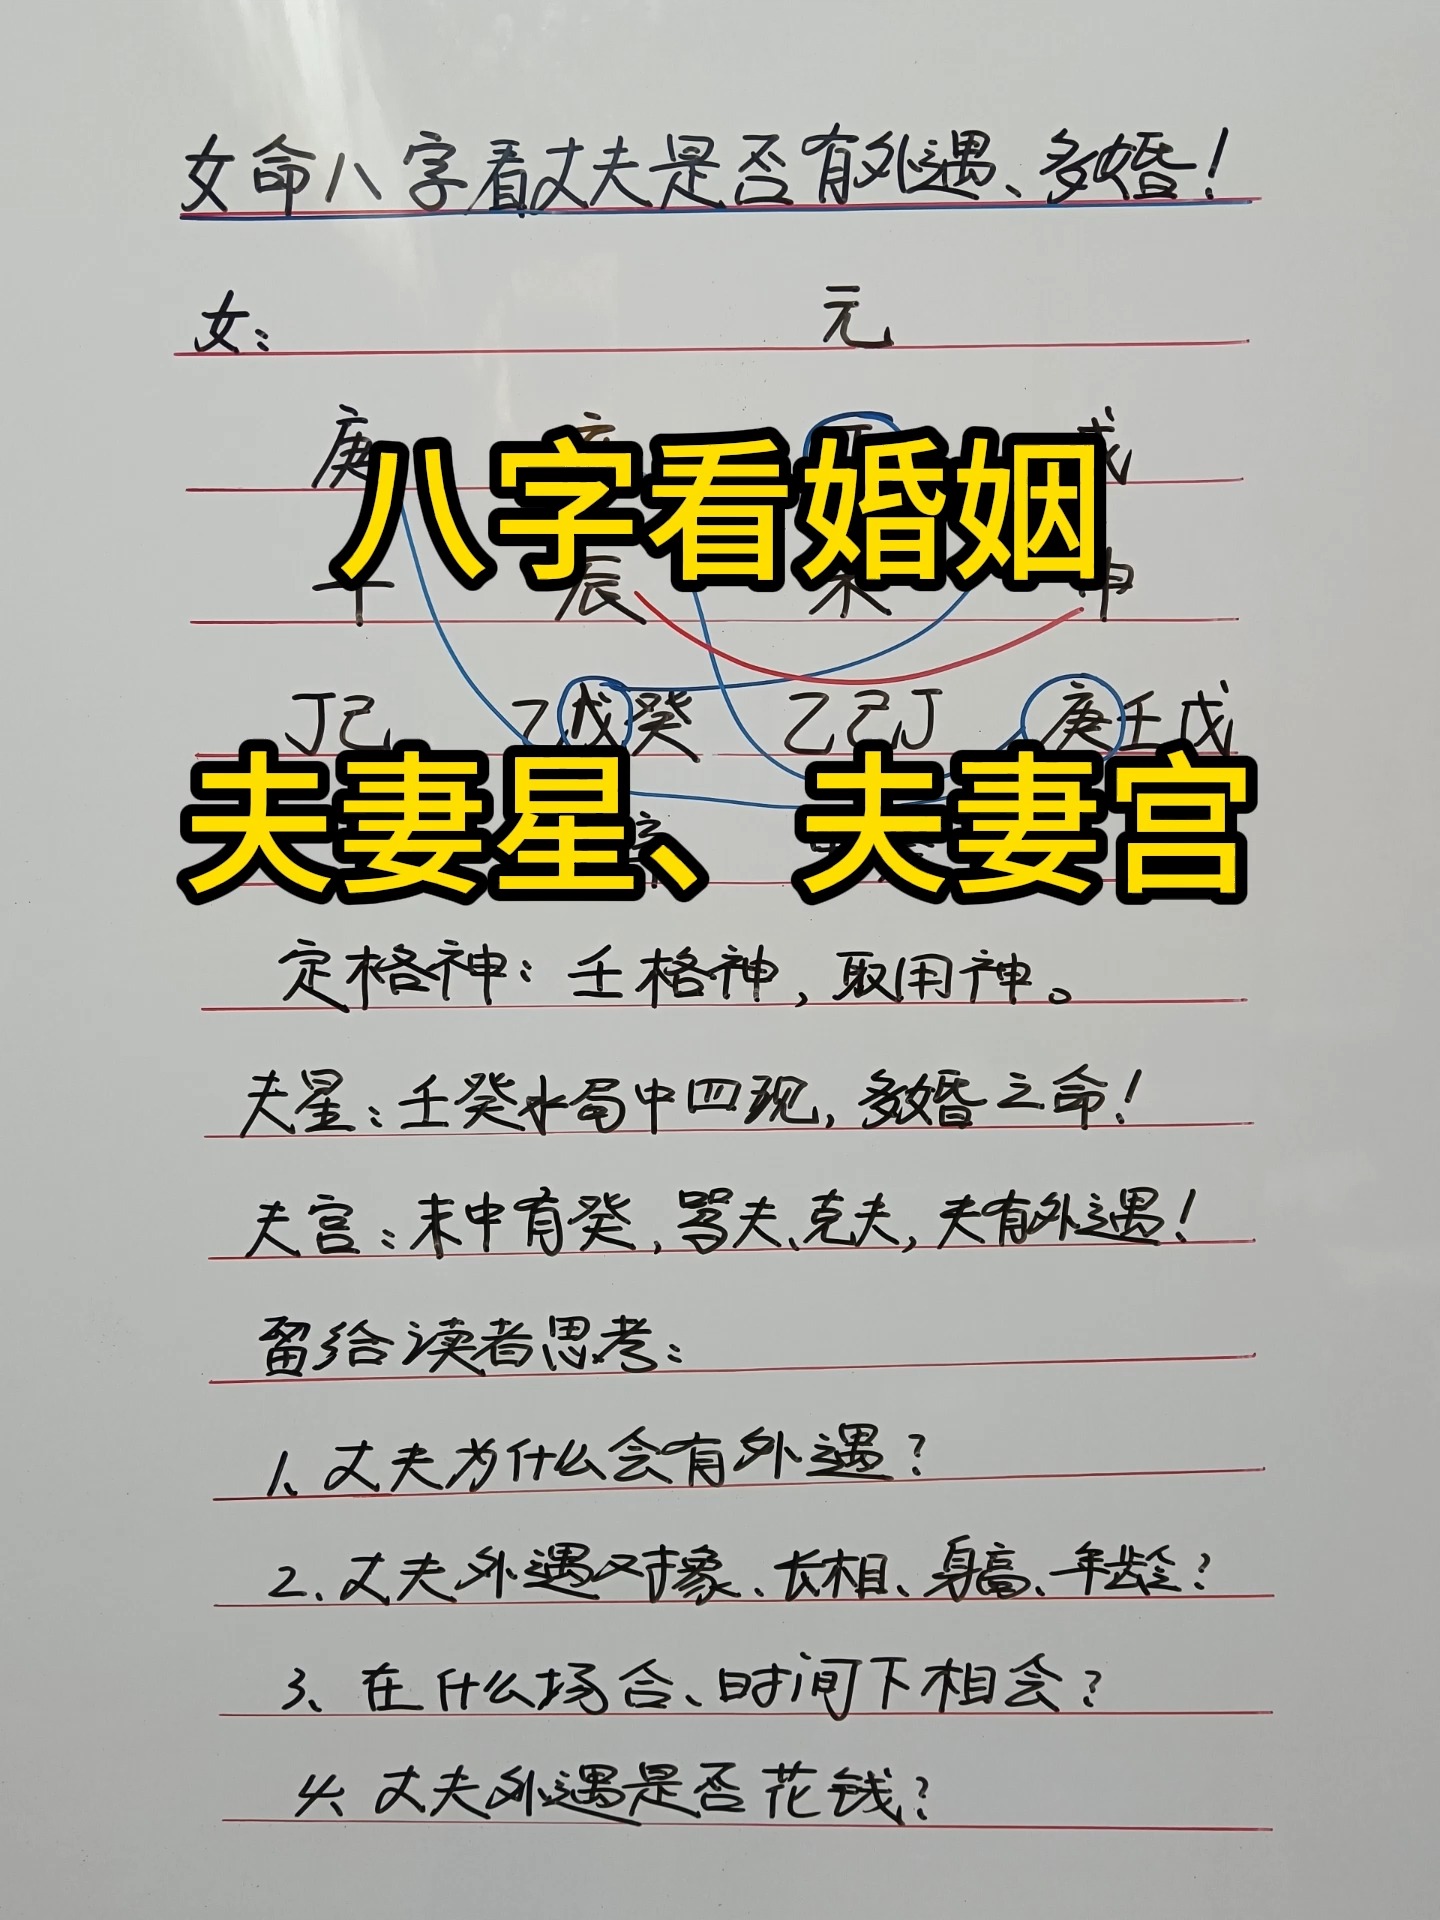 女命八字看丈夫是否有外遇、多婚！
女： 元
庚 戊
八字看婚姻
辰 未 申
丁己 乙戊癸 乙己丁 庚壬戊
夫妻星、夫妻宫
定格神：壬格神，取用神。
夫星：壬癸水局中四现，多婚之命！
夫宫：未中有癸，骂夫、克夫，夫有外遇！
留给读者思考：
1、丈夫为什么会有外遇？
2、丈夫外遇对象、长相、身高、年龄？
3、在什么场合、时间下相会？
4、丈夫外遇是否花钱？